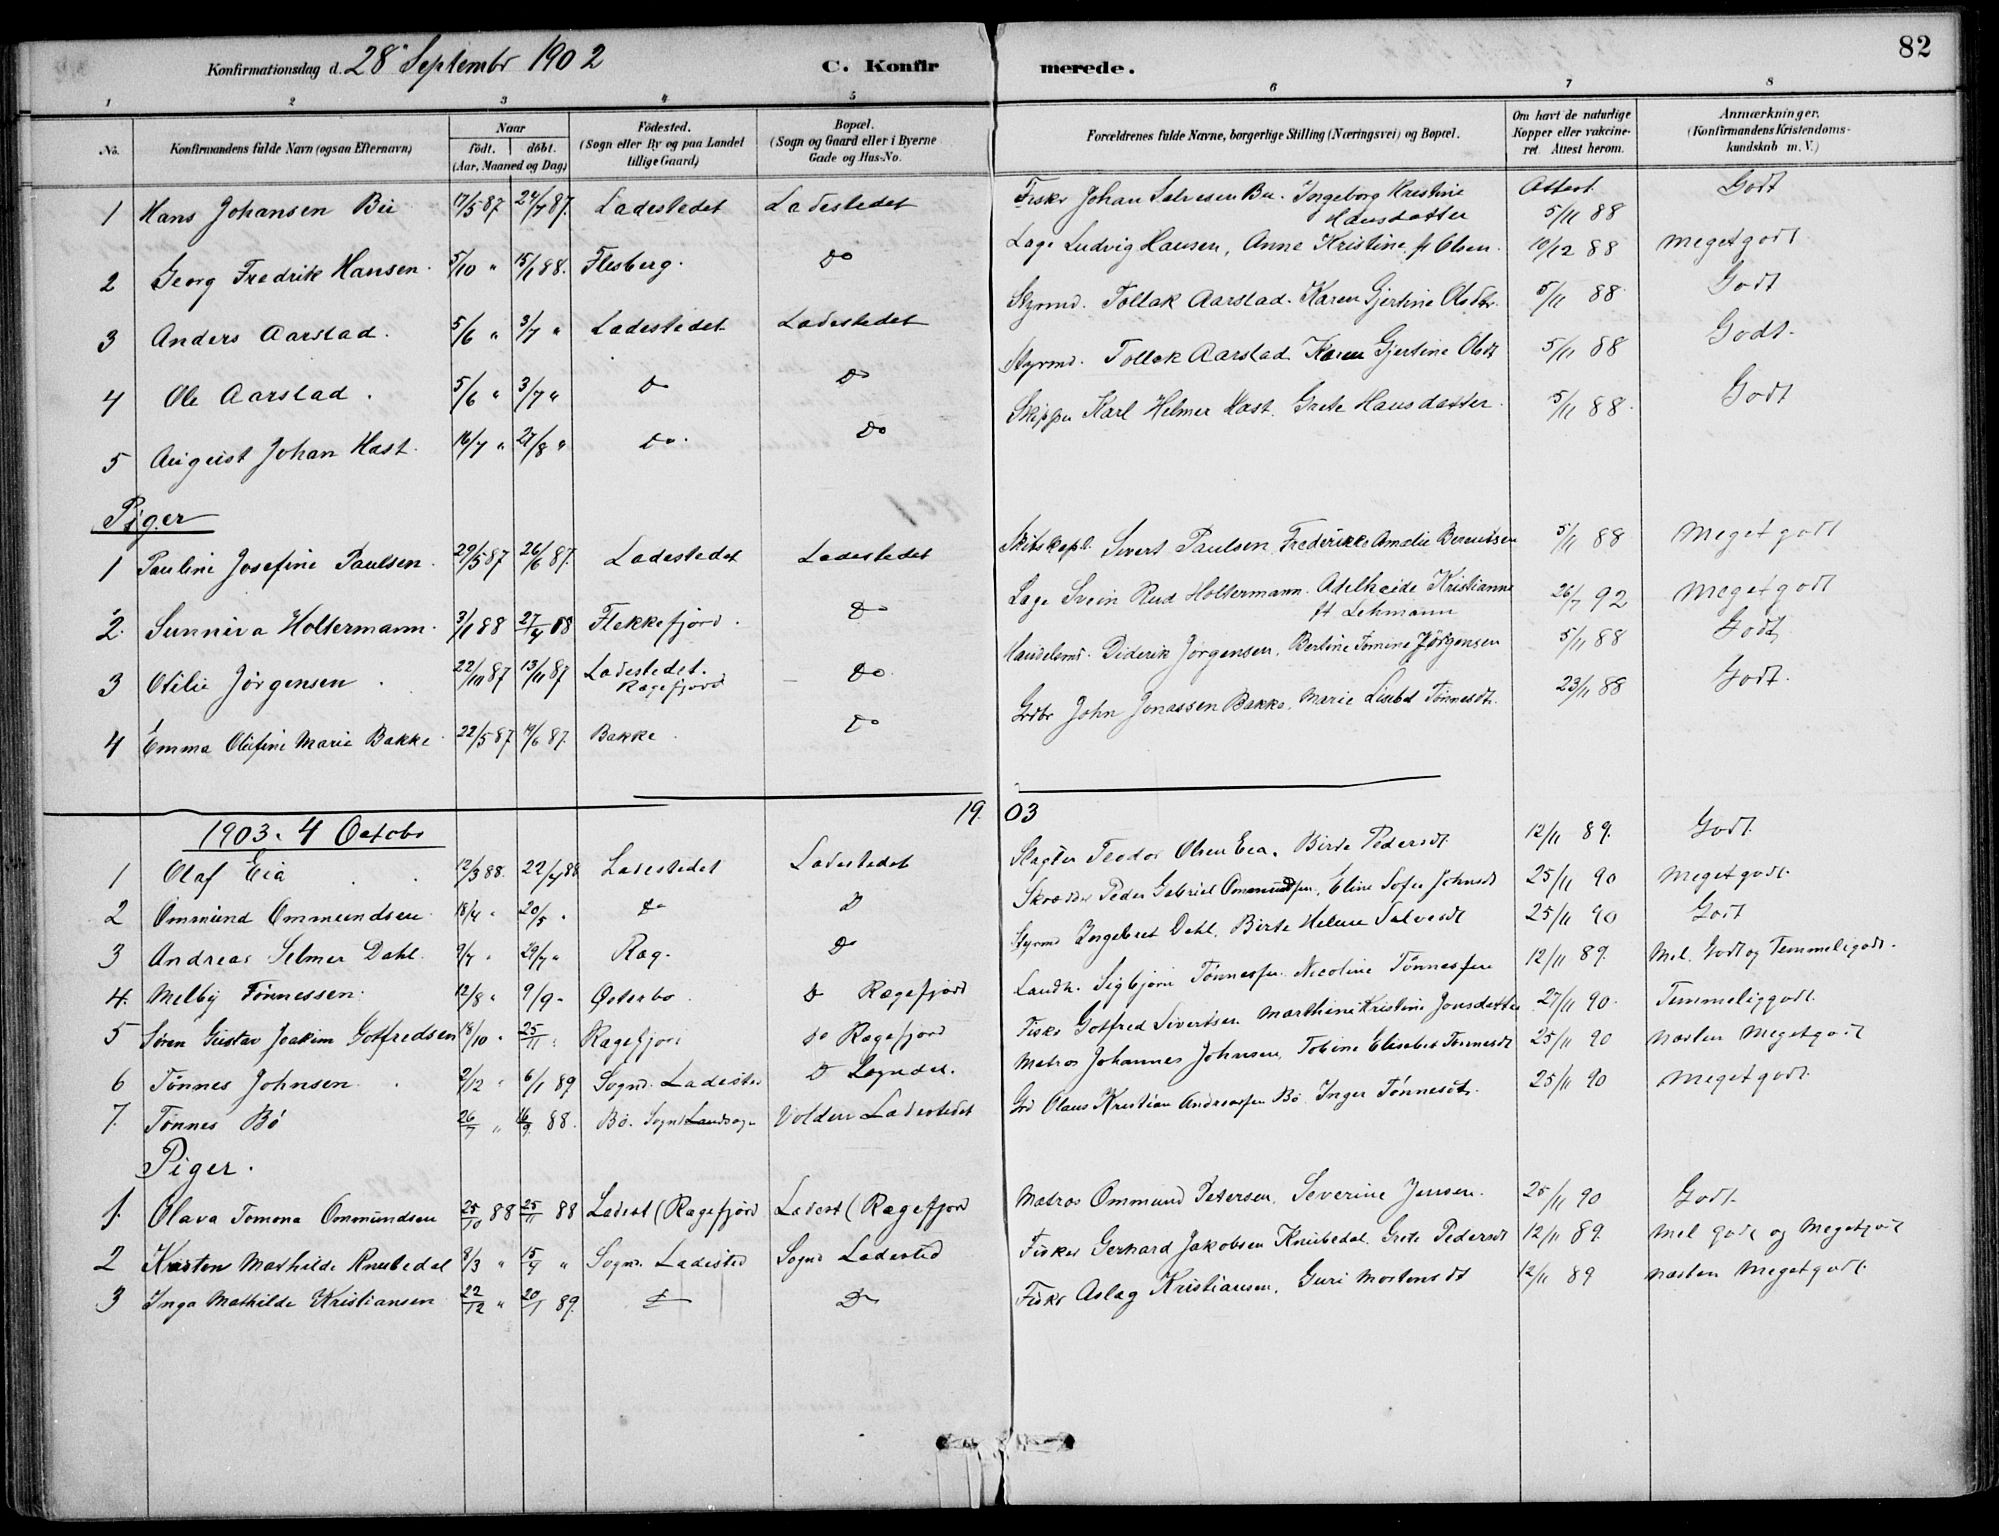 82
Konfirmationsdag d. 28 Septembr 1902 C. Konfirmerede.
1 2 3 4 5 6 7 8
No. Konfirmandens fulde Navn (ogsaa Efternavn) Naar født. døbt. (Aar, Maaned og Dag) Fødested. (Sogn eller By og paa Landet tillige Gaard) Bopæl. (Sogn og Gaard eller i Byerne Gade og Hus-No. Forældrenes fulde Navne, borgerlige Stilling (Næringsvei) og Bopæl. Om havt de naturlige Kopper eller vakcineret. Attest herom. Anmærkninger. (Konfirmandens Kristendomskundskab m. V.)
1 Hans Johansen Bu 17/5 87 24/7 87. Ladestedet Ladestedet Fisker Johan Salvesen Bu. Ingeborg Kristine Hansdatter Attest. 5/11 88 Godt
2 Georg Fredrik Hansen. 5/10 " 15/1 88. Flesberg. Do Læge Ludvig Hansen, Anne Kristine f. Olsen. 10/12 88 Meget godt
3 Anders Aarstad. 5/6 " 3/7 " Ladestedet Ladestedet Styrmd. Tollak Aarstad. Karen Gjertine Olsdtr. 5/11 88 Godt
4 Ole Aarstad. 5/6 " 3/7 " Do Do Styrmd. Tollak Aarstad. Karen Gjertine Olsdt 5/11 88 Godt.
5 August Johan Hast. 16/7 " 21/8 " Do. Do Skipper Karl Helmer Hast. Grete Hansdatter. 5/11 88. Godt
Piger
1 Pauline Josefine Paulsen. 29/5 87 26/6 87. Ladestedet Ladestedet Sivert Paulsen, Frederikke Amalie Berentsen 5/11 88 Meget godt
2. Sunniva Holtermann. 3/1 88 27/4 88 Flekkefjord. Do Læge Svein Rud Holtermann. Adelheide Kristianne ft Lehmann 26/7 92 Meget godt
3 Otilie Jørgensen. 22/10 87 13/11 87 Ladestedet. Ragefjord Do Handelsmd. Diderik Jørgensen, Bertine Tomine Jørgensen 5/11 88 Godt
4 Emma Olefine Marie Bakke 22/5 87 19/6 87. Bakke. Do Grdbr John Jonassen Bakke, Marie Lisebet Tønnesdtr. 23/11 88 Godt.
1903
1903. 4 Octobr
1 Olaf Eia 12/3 88. 22/4 88 Ladestedet Ladestedet Slagter Teodor Olsen Eia. Birte Pedersdt 12/11 89. Godt.
2 Ommund Ommundsen 18/4 " 20/5 " Do Do Skrædder Peder Gabriel Ommundsen, Eline Sofie Johnsdt 25/11 90 Meget godt.
3 Andreas Selmer Dahl. 9/7 " 29/7 " Rag. Do Styrmd Ingebret Dahl, Birte Helene Salvesdt 25/11 90 Godt
4. Melby Tønnessen. 12/8 " 9/9 " Osterbo Do Ragefjord Landh. Sigbjørn Tønnessen. Nicoline Tønnessen 12/11 89. Mel. Godt og Temmeligodt.
5 Søren Gustav Joakim Gotfredsen 18/10 " 25/11 " Ragefjord do Ragefjord Fisker Gotfred Sivertsen. Marthine Kristine Jonsdatter 27/11 90. Temmeliggodt.
6 Tønnes Johnsen 2/12 " 6/1 89 Sognd. Ladested Do Matros Johannes Johnsen, Tobine Elisabet Tønnesdt 25/11 90 Næsten Megetgodt
7. Tønnes Bø 26/7 " 16/9 88. Bø. Sognd Landsogn Volden Ladestedet Grd Olaus Kristian Andreassen Bø Inger Tønnesdt. 25/11 90 Megetgodt.
Piger.
1. Olava Tomona Ommundsen 25/10 88 25/11 88 Ladest (Ragefjord Ladest (Ragefjord Matros Ommund Petersen, Severine Jensen. 25/11 90 Godt.
2 Karsten Mathilde Knubedal 8/3 " 15/4 " Sogn. Ladested Sogn Ladested Fisker Gerhard Jakobsen Knubedal. Grete Pedersdt 12/11 89. Mel godt og Megetgodt
3 Inga Mathilde Kristiansen 22/12 " 20/1 89. Do Do Fisker Aslag Kristiansen, Guri Mortensdt 12/11 89 Næsten Megetgodt.